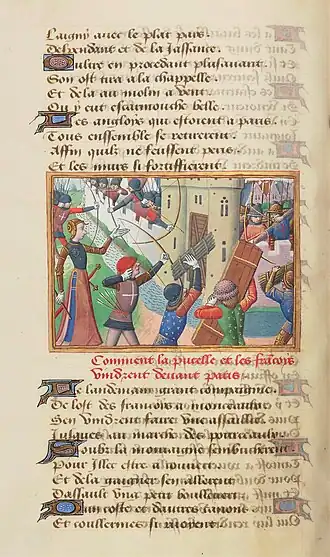 Laigny avec le plat pais.
Despendant et de la Jassance.
Oultre en procedant plusavant.
Son ost tira a la chappelle.
Et de la au molin a vent.
Ou y eut escarmouche belle.
Les angloys qui estoient a paris.
Tous enssemble se retirerent.
Affin quilz ne feussent peris
Et les murs si fortiffierent.
Comment la pucelle et les francoys
vindrent devant paris.
Le landemain grant compaignie.
De lost des francois a monceaulx
Sen vindrent faire une assaillie
Jusques au marche des pourceaulx
Soubz la montaigne sembucherent.
Pour illec estre a couvert.
Et de la gaigner sen allerent
Dassault ung petit boullevert
Dun coste et dautres canons
Et coullevrines si ruoyent